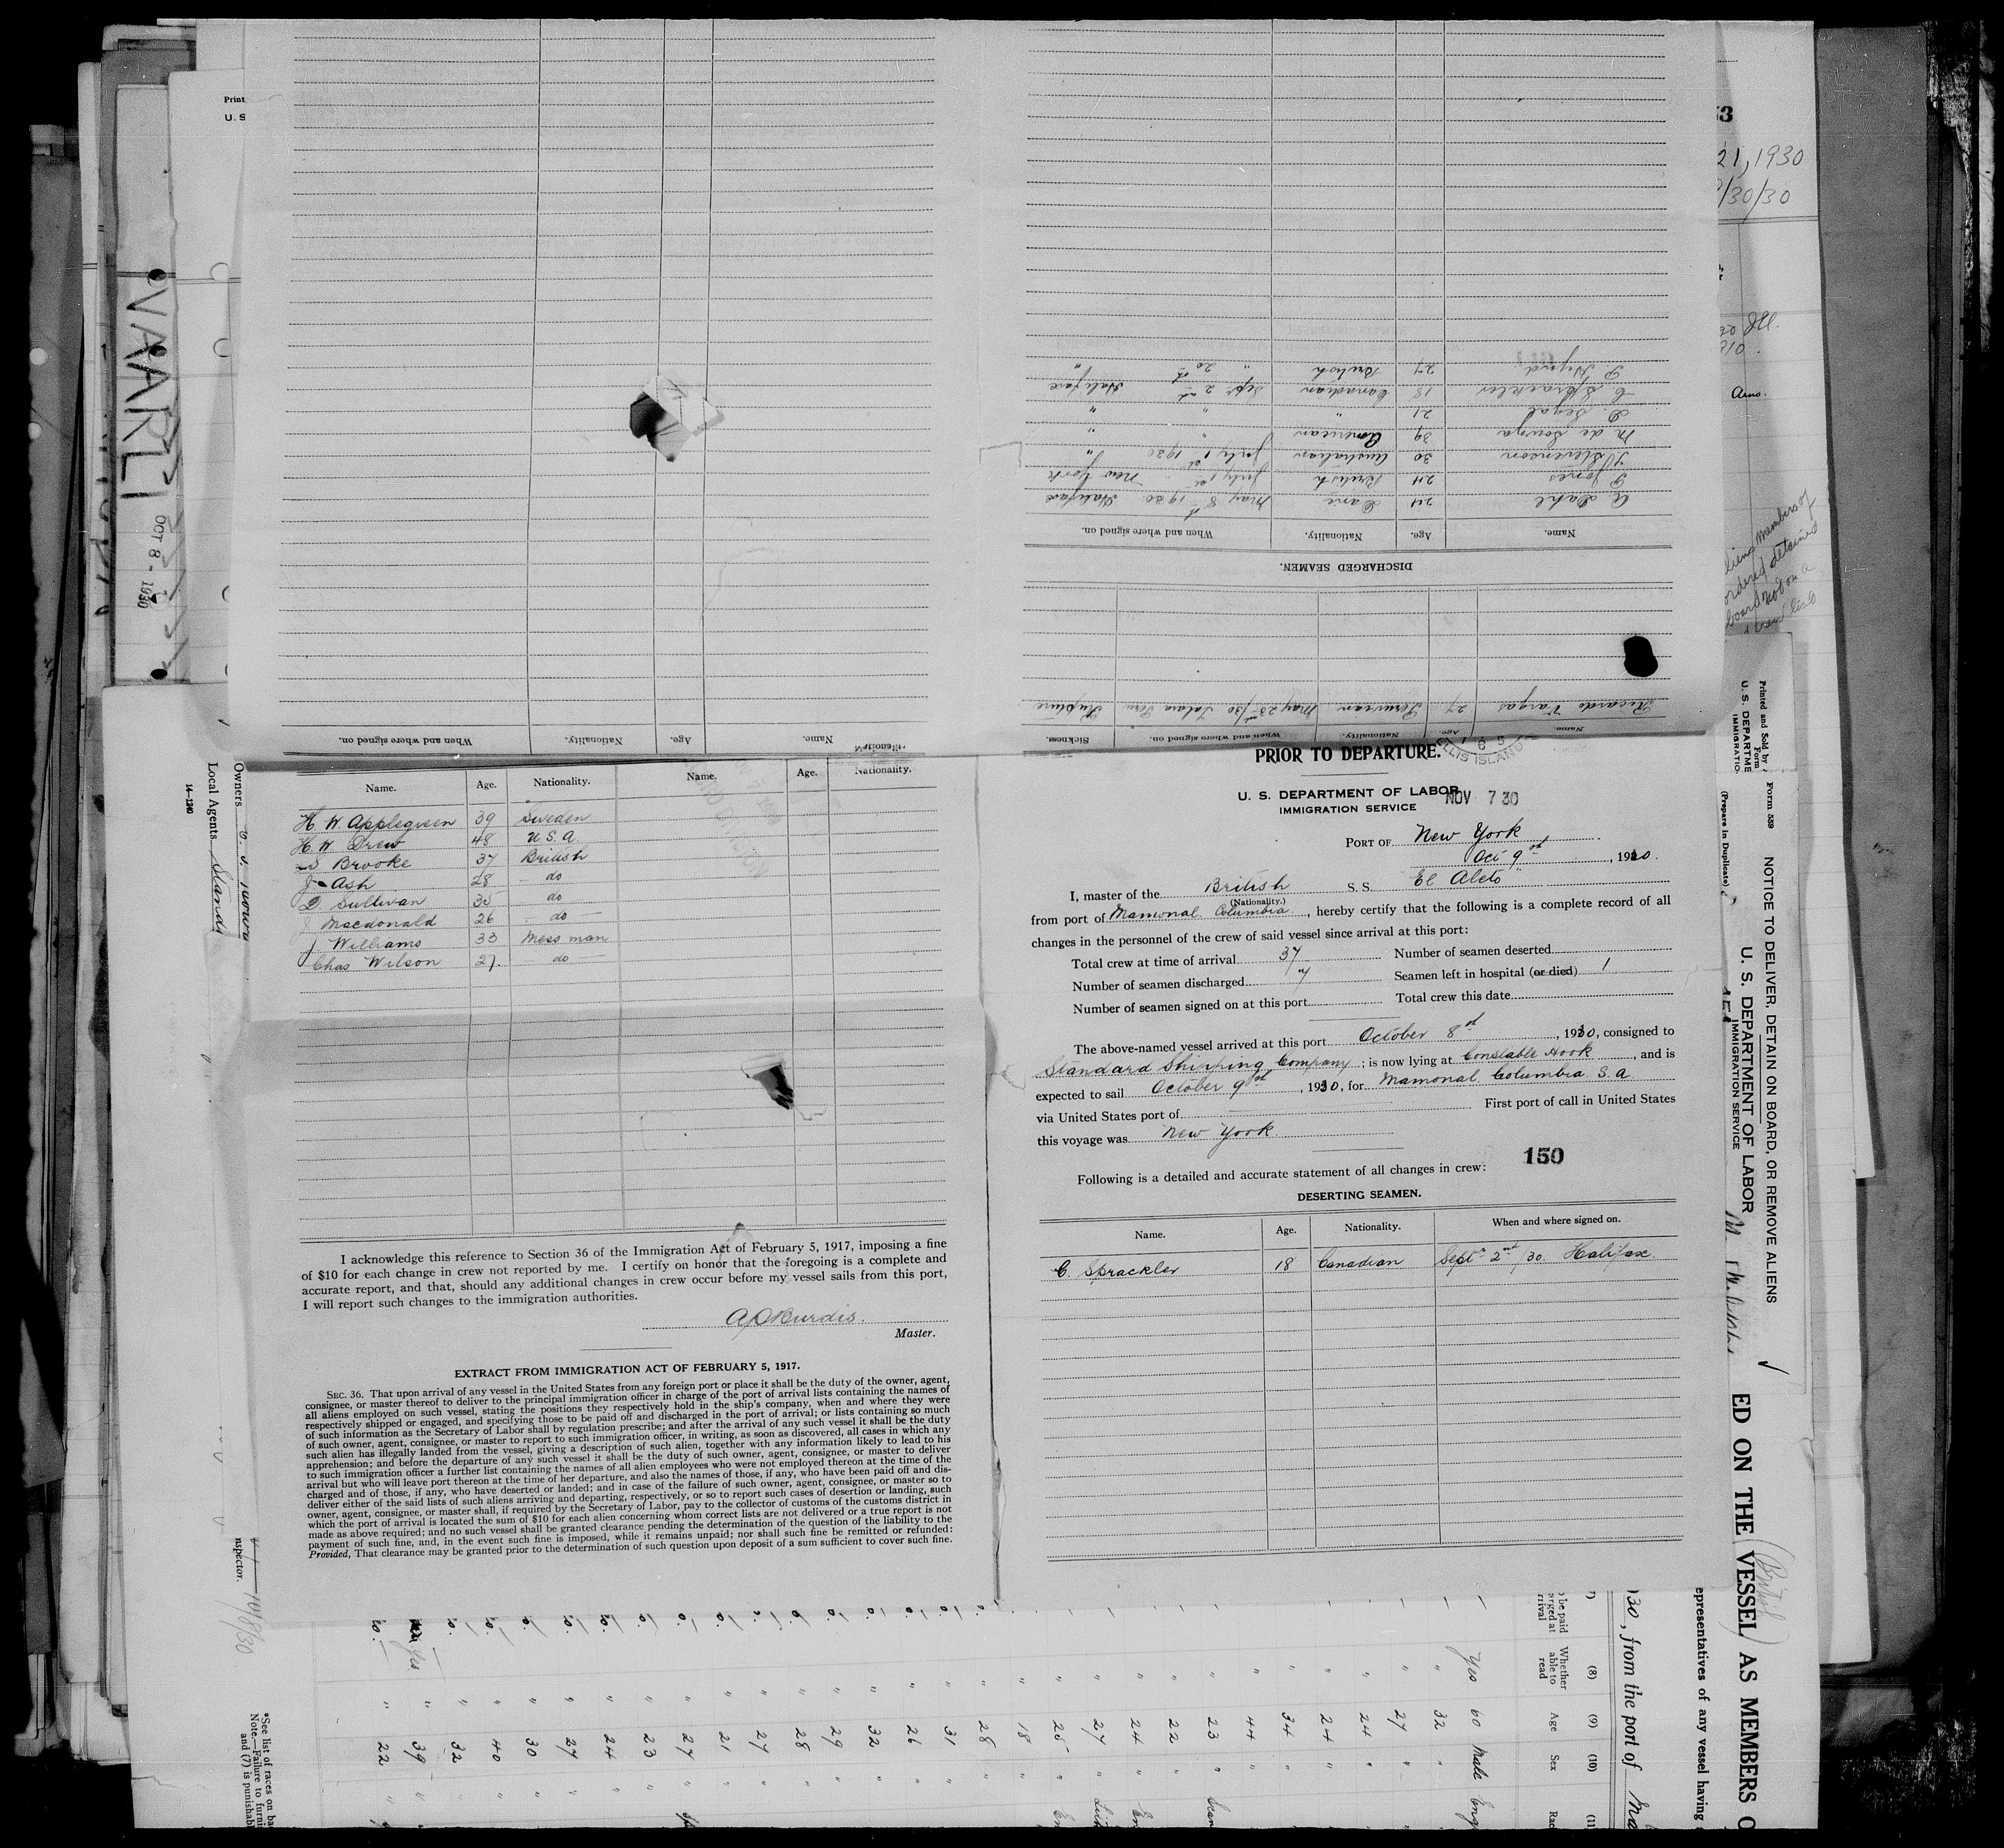 PRIOR TO DEPARTURE.
ELLIS ISLAND
U. S. DEPARTMENT OF LABOR
IMMIGRATION SERVICE
NOV 7 30
PORT OF New York
Oct 9th, 1930.
I, master of the British S. S. El Aleto
(Nationality.)
from port of Mamonal Columbia, hereby certify that the following is a complete record of all
changes in the personnel of the crew of said vessel since arrival at this port:
Total crew at time of arrival 37 Number of seamen deserted
Number of seamen discharged 7 Seamen left in hospital (or died) 1
Number of seamen signed on at this port Total crew this date
The above-named vessel arrived at this port October 8th, 1930, consigned to
Standard Shipping Company; is now lying at Constable Hook, and is
expected to sail October 9th, 1930, for Mamonal Columbia S. a
via United States port of First port of call in United States
this voyage was New York
150
Following is a detailed and accurate statement of all changes in crew:
DESERTING SEAMEN.
Name. Age. Nationality. When and where signed on.
C. Sprackler 18 Canadian Sept 2nd /30 Halifax
Name. Age. Nationality. When and where signed on. Sickness.
Ricardo Vargas 27 Peruvian May 23rd/30 Talara Peru Rupture
DISCHARGED SEAMEN.
Name. Age. Nationality. When and where signed on.
A Dahl 24 Dane May 8th 1930 Halifax
P Jones 24 British July 1st New York
Stevenson 30 Australian July 1st 1930 "
M de Souza 39 American " "
L. Segal 21 " " "
C Sprackler 18 Canadian Sept 2nd Halifax
P Hynd 27 British " 20th "
Name. Age. Nationality. When and where signed on.
Name. Age. Nationality. Name. Age. Nationality.
H. W. Applegreen 39 Sweden
H. W. Drew 48 U.S.A.
S Brooke 37 British
J Ash 28 do
D. Sullivan 35 do
J Macdonald 26 do
J. Williams 33 Mess man
Chas Wilson 27. do
I acknowledge this reference to Section 36 of the Immigration Act of February 5, 1917, imposing a fine
of $10 for each change in crew not reported by me. I certify on honor that the foregoing is a complete and
accurate report, and that, should any additional changes in crew occur before my vessel sails from this port,
I will report such changes to the immigration authorities.
Master.
EXTRACT FROM IMMIGRATION ACT OF FEBRUARY 5, 1917.
SEC. 36. That upon arrival of any vessel in the United States from any foreign port or place it shall be the duty of the owner, agent,
consignee, or master thereof to deliver to the principal immigration officer in charge of the port of arrival lists containing the names of
all aliens employed on such vessel, stating the positions they respectively hold in the ship's company, when and where they were
respectively shipped or engaged, and specifying those to be paid off and discharged in the port of arrival; or lists containing so much
of such information as the Secretary of Labor shall by regulation prescribe; and after the arrival of any such vessel it shall be the duty
of such owner, agent, consignee, or master to report to such immigration officer, in writing, as soon as discovered, all cases in which any
such alien has illegally landed from the vessel, giving a description of such alien, together with any information likely to lead to his
apprehension; and before the departure of any such vessel it shall be the duty of such owner, agent, consignee, or master to deliver
to such immigration officer a further list containing the names of all alien employees who were not employed thereon at the time of the
arrival but who will leave port thereon at the time of her departure, and also the names of those, if any, who have been paid off and dis-
charged and of those, if any, who have deserted or landed; and in case of the failure of such owner, agent, consignee, or master so to
deliver either of the said lists of such aliens arriving and departing, respectively, or so to report such cases of desertion or landing, such
owner, agent, consignee, or master shall, if required by the Secretary of Labor, pay to the collector of customs of the customs district in
which the port of arrival is located the sum of $10 for each alien concerning whom correct lists are not delivered or a true report is not
made as above required; and no such vessel shall be granted clearance pending the determination of the question of the liability to the
payment of such fine, and, in the event such fine is imposed, while it remains unpaid; nor shall such fine be remitted or refunded:
Provided, That clearance may be granted prior to the determination of such question upon deposit of a sum sufficient to cover such fine.
OCT 8 - 1930
Owners
Local Agents Stand
14-1240
21, 1930
/30/30
Form 559
(Prepare in Duplicate)
NOTICE TO DELIVER, DETAIN ON BOARD, OR REMOVE ALIENS
U. S. DEPARTMENT OF LABOR
IMMIGRATION SERVICE
ED ON THE VESSEL AS MEMBERS O
(British)
epresentatives of any vessel having
30, from the port of Ma
(8) (9) (10) (11)
Whether able to read Age Sex Rac
Yes 60 Male Eng
" 32 "
" 27 "
" 24 "
" 24 "
" 34 "
" 44 "
" 23 " Scan
" 22 "
" 24 "
" 27 "
" 25 "
" 18 "
" 28 "
" 31 "
" 26 "
" 32 "
" 29 "
" 28 "
" 27 "
" 21 "
" 27 "
" 23 "
" 24 "
" 27 "
" 30 "
" 40 "
" 32 "
" 39 "
" 22 "
10/8/30
*See list of races on ba
Note.—Failure to furni
and (7) is punishabl